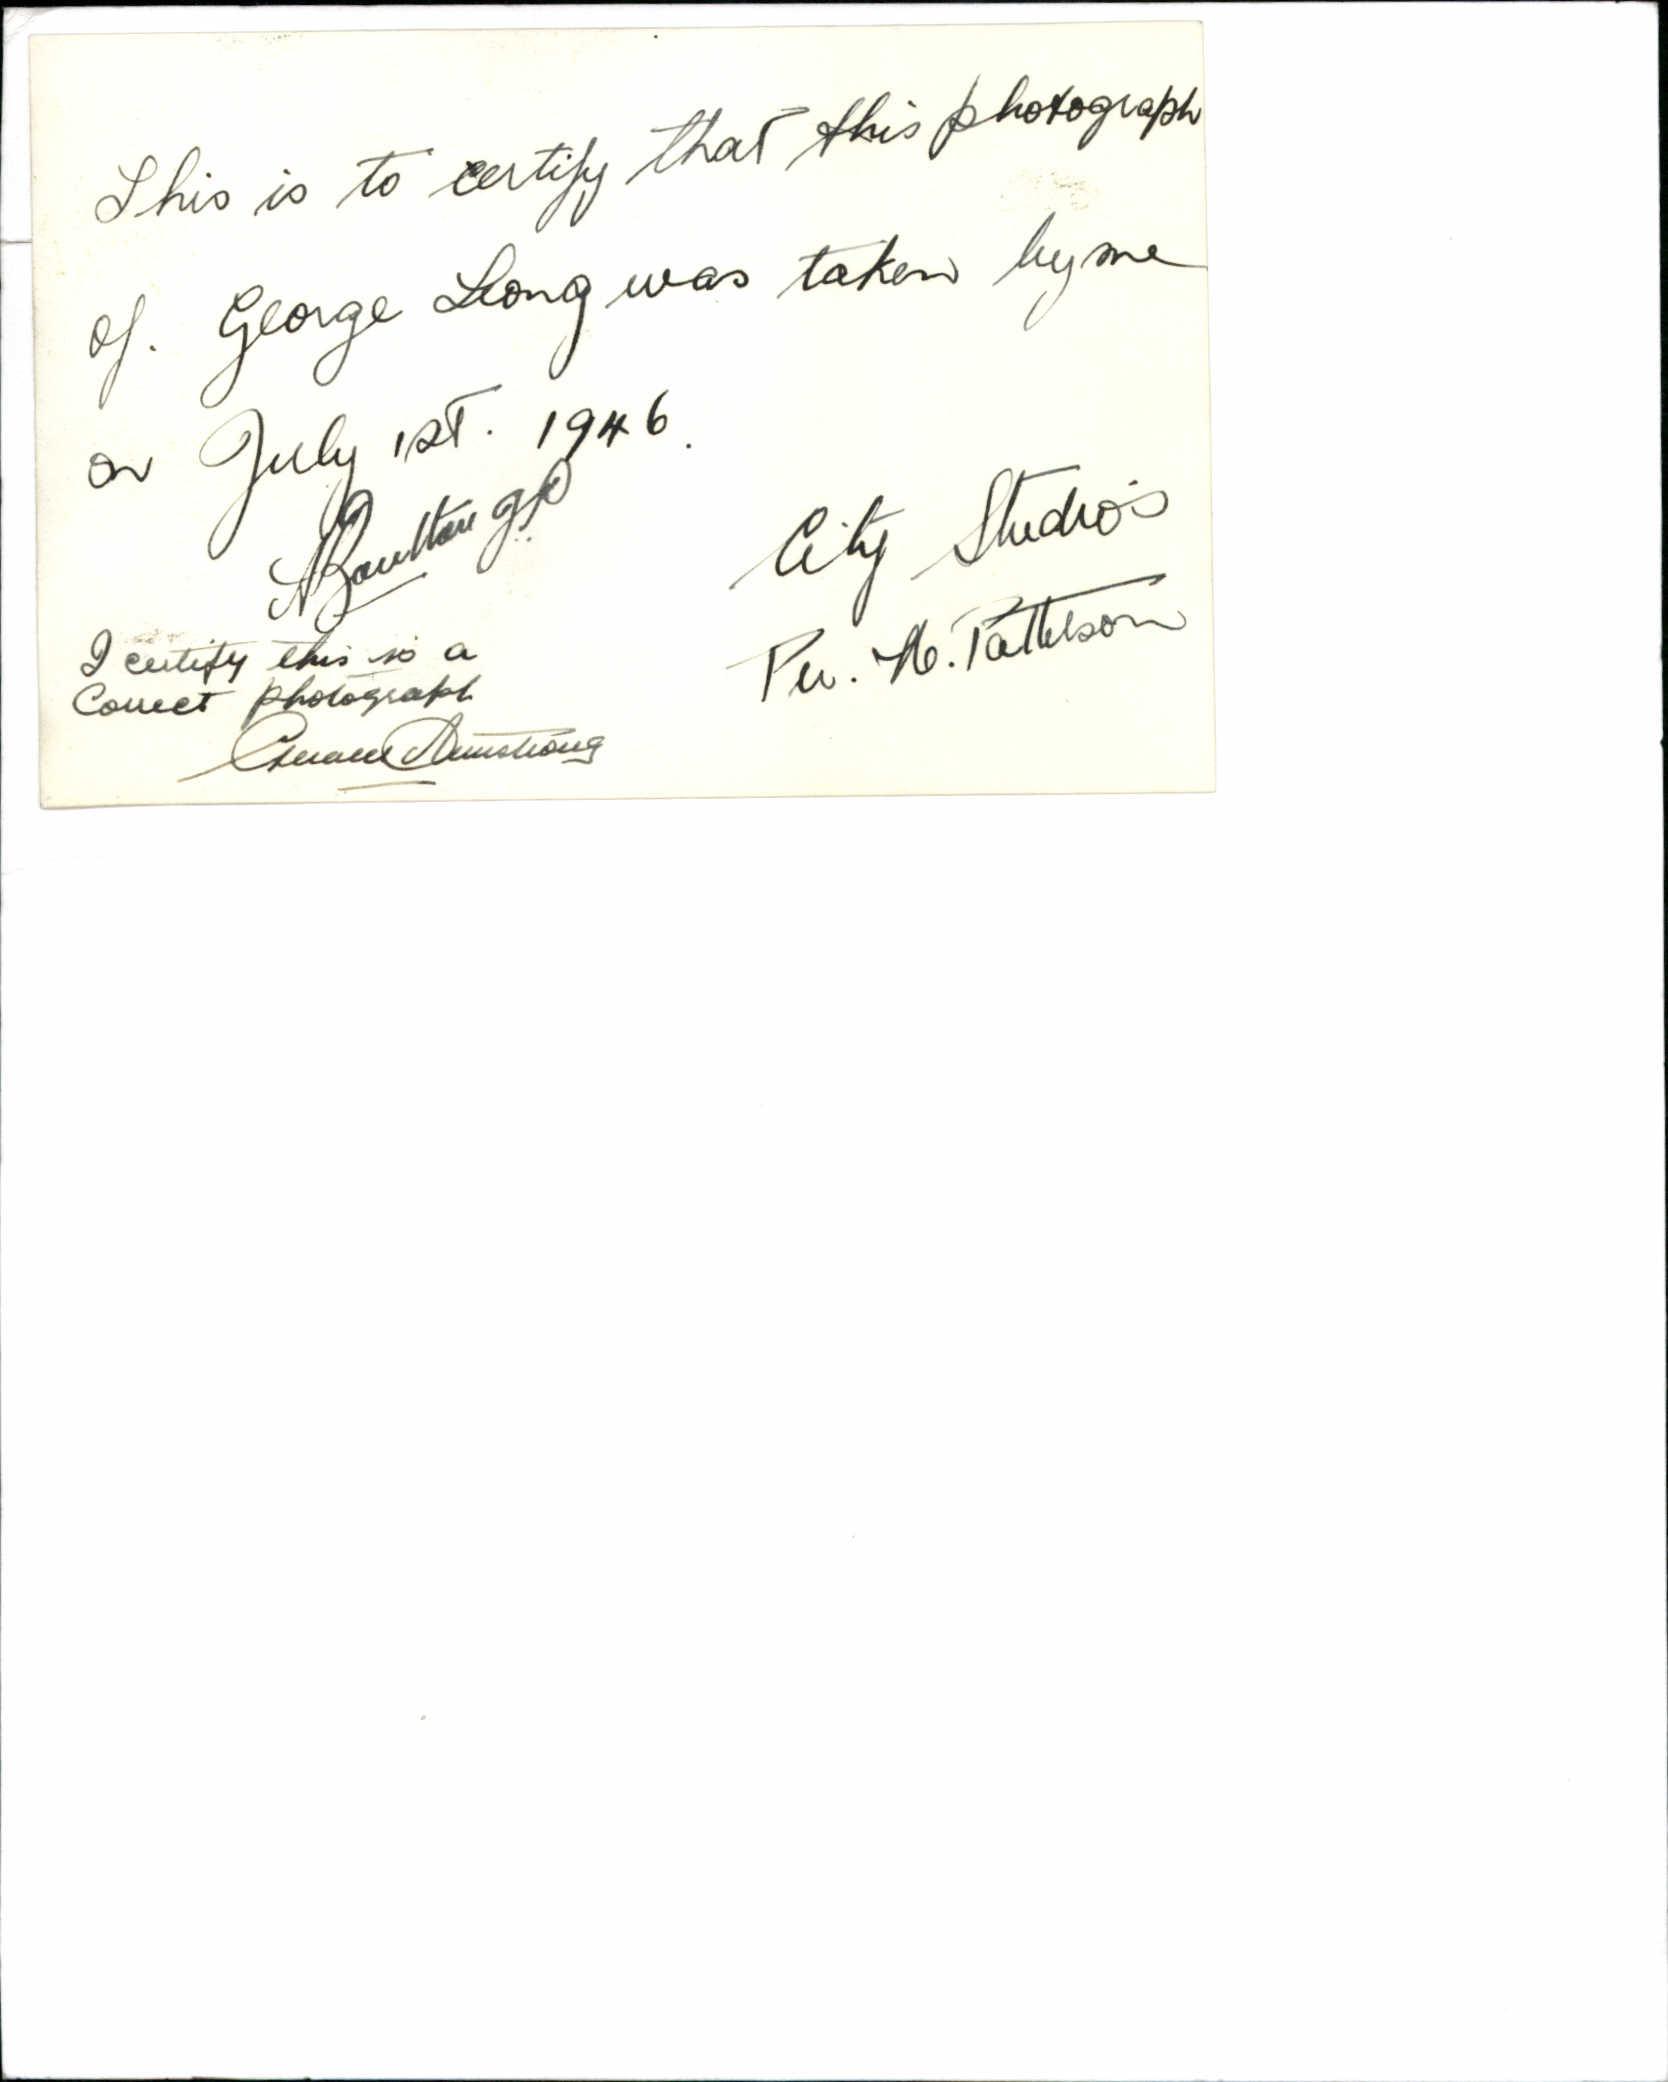 This is to certify that this photograph
of. George Leong was taken by me
on July 1st. 1946.
A Boulton J.P.
City Studio's
Per. H. Patterson
I certify this is a
Correct photograph
Armstrong